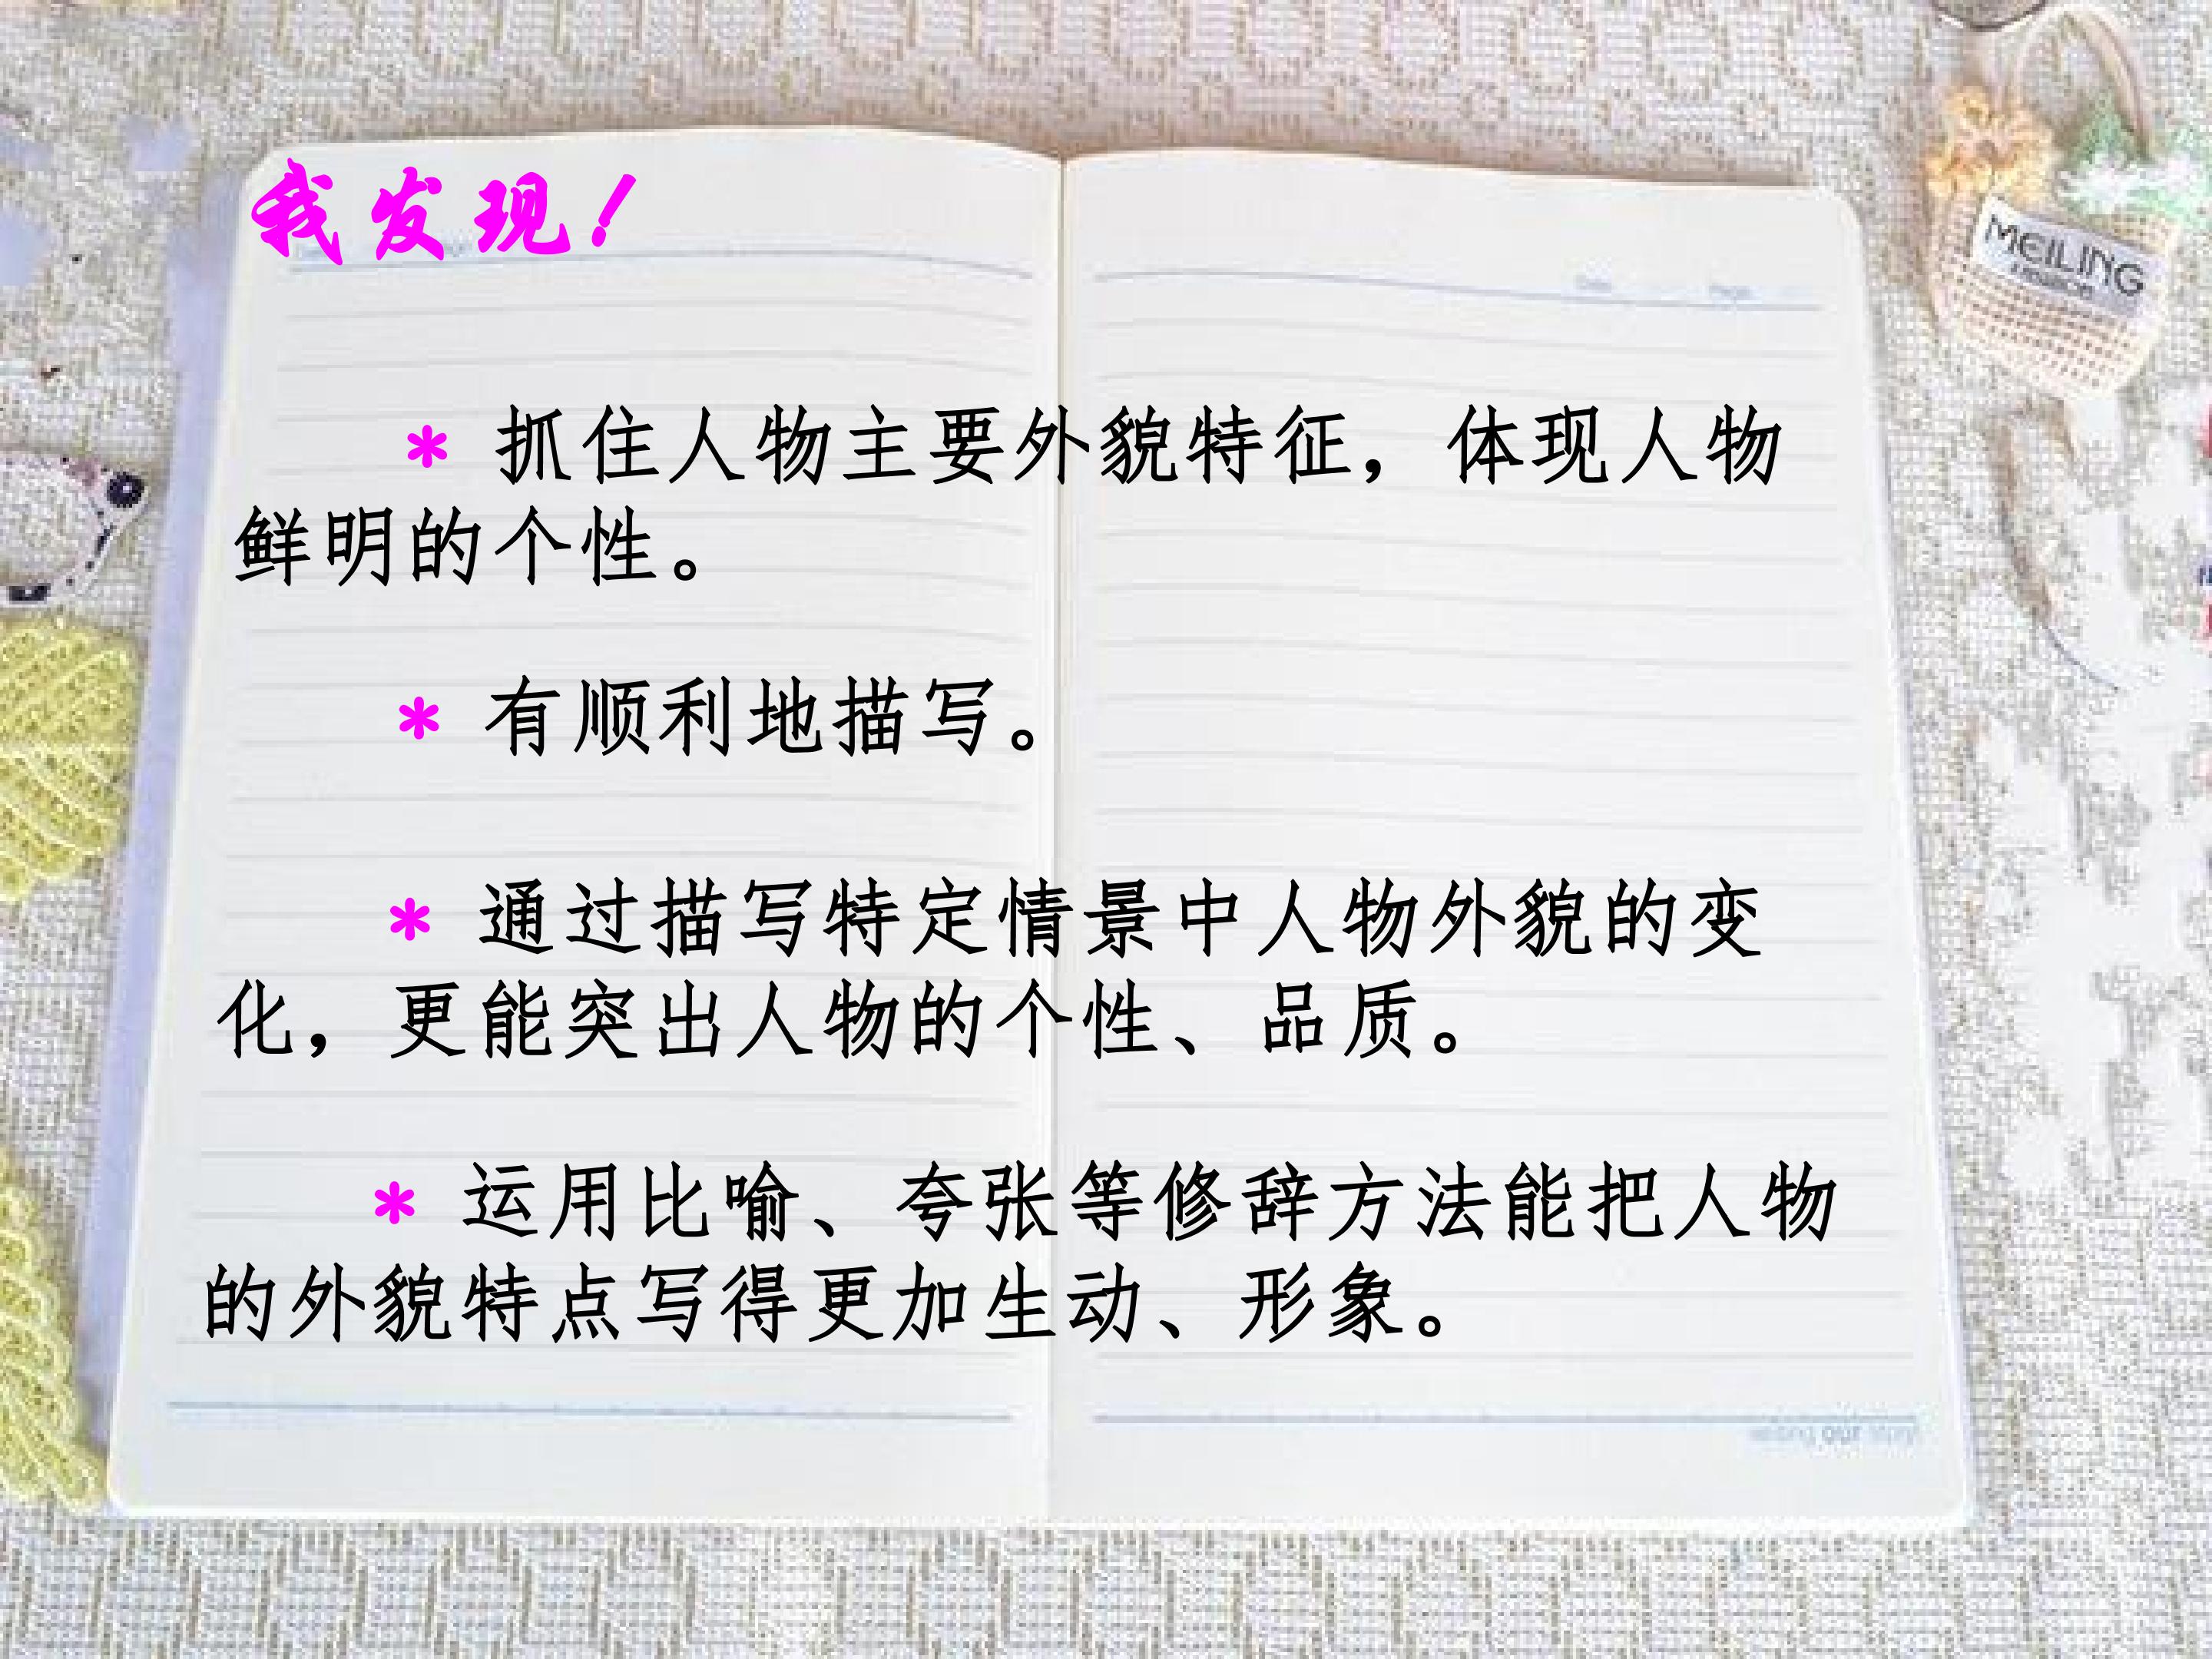 我发现！
* 抓住人物主要外貌特征，体现人物
鲜明的个性。
* 有顺利地描写。
* 通过描写特定情景中人物外貌的变
化，更能突出人物的个性、品质。
* 运用比喻、夸张等修辞方法能把人物
的外貌特点写得更加生动、形象。
MEILING